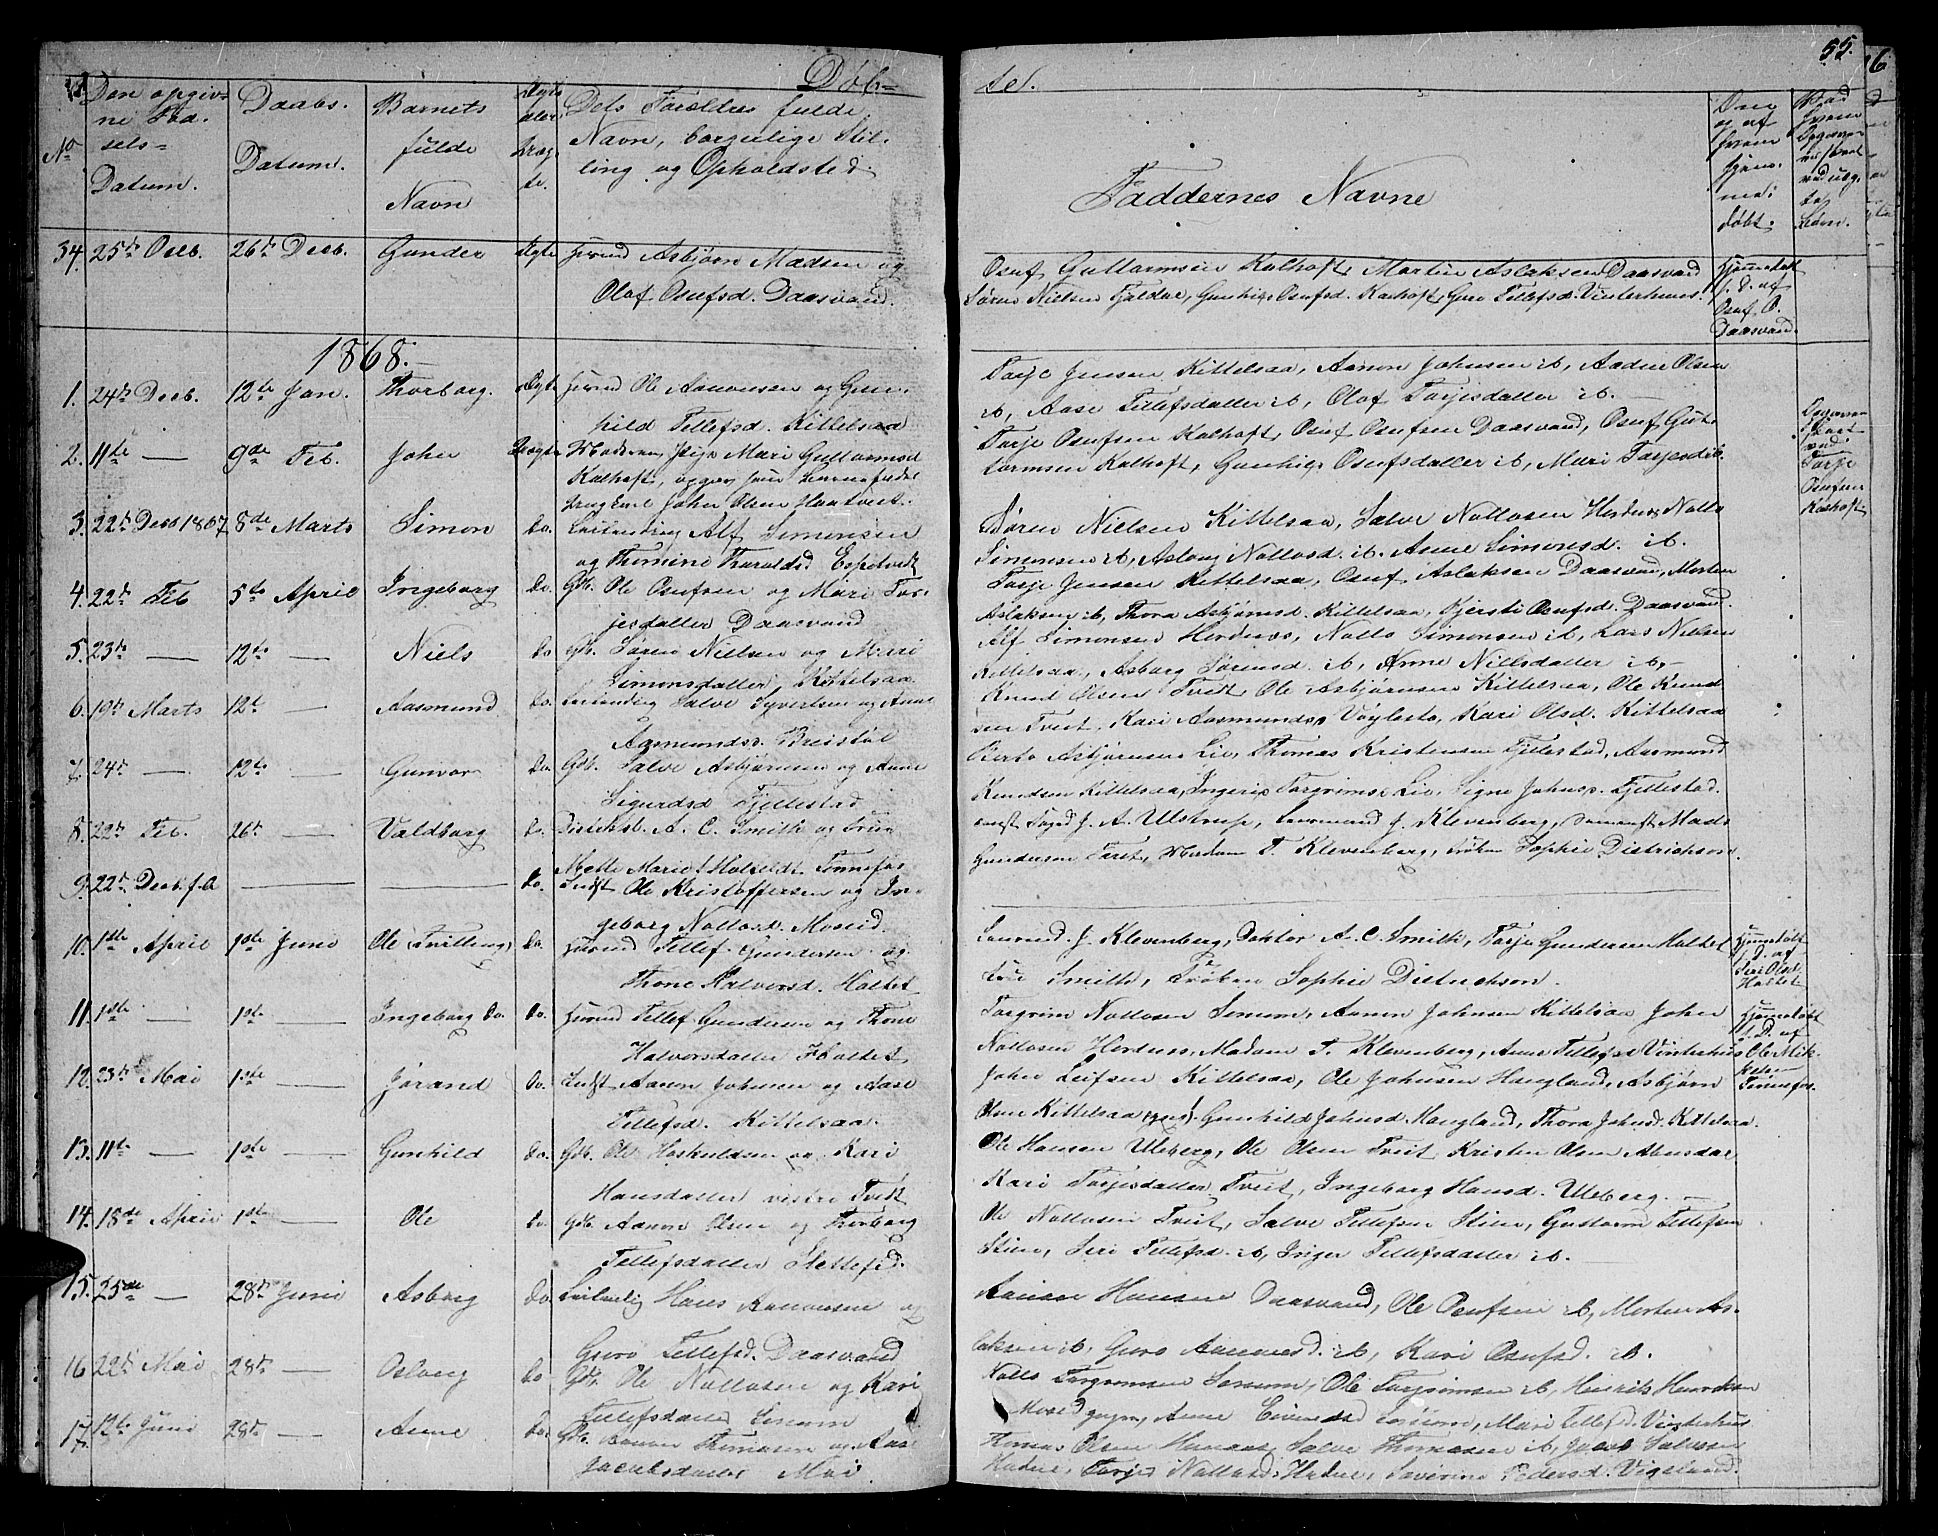 Døb-
te.
55.
No
Den opgiv-
ne Fød-
sels-
Datum.
Daabs-
Datum.
Barnets
fulde
Navn
Ægte
eller
uægte.
Dets Forældres fulde
Navn, borgerlige Stil-
ling og Opholdsted
Faddernes Navne
34. 25de Octb. 26de Decb. Gunder Ægte Huusmd Asbjørn Madsen og
Olaf Osufsd. Daasvand.
Osuf Guttormsen Kalhoft, Morten Aslaksen Daasvand
Søren Nielsen Fjeldal, Gunhild Osufsd. Kalhoft, Guro Tellefsd. Vinterhuus.
Hjemmedøbt
af
Osuf O.
Daasvand.
1868.
1. 24de Decb. 12te Jan. Thorborg. Ægte Huusmd Ole Aanonsen og Gun-
hild Tellefsd. Kittelsaa
Torje Jensen Kittelsaa, Aanon Johnsen ib, Aadne Olsen
ib, Aase Tellefsdatter ib, Olaf Torjesdatter ib.
2. 11te — 9de Feb. John Uægte Moderen, Pige Mari Guttormsd
Kalhoft, opgav som Barnefader
Ungkarl John Olsen Haatveit.
Torje Osufsen Kalhoft, Osuf Osufsen Daasvand, Osuf Gut-
tormsen Kalhoft, Gunhild Osufsdatter ib, Mari Torjesd ib.
Torje
Osufsen
Kalhoft
3. 22de Decb 1867 8de Marts Simon Do. Alf Simonsen
og Thomine Tharaldsd Espetvedt
Søren Nielsen Kittelsaa, Salve Nallosen Herdnes, Nallo
Simonsen ib, Aslaug Nallosd. ib. Anne Simonsd. ib.
4. 22de Feb 5te April Ingeborg Do. Gdb. Ole Osufsen og Mari Tor-
jesdatter Daasvand
Torje Jensen Kittelsaa, Osuf Aslaksen Daasvand, Morten
Aslaksen ib, Thora Asbjørnsd. Kittelsaa, Kjersti Osufsd. Daasvand.
5. 23de — 12te — Niels Do Gdb. Søren Nielsen og Mari
Simonsdatter Kittelsaa
Alf Simonsen Herdnes, Nallo Simonsen ib, Lars Nielsen
Kittelsaa, Asborg Sørensd. ib, Anne Nielsdatter ib.
6. 19de Marts 12te — Aasmund Do. Salve Syvertsen og Anne
Aasmundsd. Breistøl
Knud Olsen Tveit, Ole Asbjørnsen Kittelsaa, Ole Knud
sen Tveit, Kari Aasmundsd Vøglestø, Kari Olsd. Kittelsaa
7. 24de — 12te — Gunvor Do. Gdb. Salve Asbjørnsen og Anne
Sigurdsd Fjellestad
Berte Asbjørnsen Lie, Thomas Kristensen Fjellestad, Aasmund
Knudsen Kittelsaa, Ingerid Torgrimsd Lie, Signe Johnsd. Fjellestad.
8. 22de Feb. 26de — Valdborg Do. Distriktsl. A. C. Smith og Frue
Mette Marie Holfeldt Tønnefos
J. A. Ulstrup, Lensmand J. Klevenberg, Mads
Gundersen Tveit, Madam T. Klevenberg, Frøken Sophie Dietrichson.
9. 22de Decb. f. A. — — Do. Indst Ole Kristoffersen og In-
geborg Nallosd. Moseid.
10. 1ste April 1ste Juni Ole (Tvilling) Do. Huusmd Tellef Gundersen og
Thone Halvorsd. Holtet
Lensmd. J. Klevenberg, Doktor A. C. Smith, Torje Gundersen Holtet
Frue Smith, Frøken Sophie Dietrichson.
Hjemmedøbt
af
Siri Olsd.
Holtet
11. 1ste — 1ste — Ingeborg Do. Do. Huusmd Tellef Gundersen og Thone
Halvorsdatter Holtet
Torgrim Nallosen Senum, Aanon Johnsen Kittelsaa John
Nallosen Herdnes, Madam T. Klevenberg, Anne Tellefsd Vinterhuus
Hjemmedøbt
af
Ole Mik-
kelsen
Tønnefos.
12. 23de Mai 1ste — Jørand Do. Indst Aanon Johnsen og Aase
Tellefsd. Kittelsaa.
John Leifsen Kittelsaa, Ole Johnsen Haugland, Asbjørn
Olsen Kittelsaa, Gunhild Johnsd. Haugland, Thora Johnsd. Kittelsaa.
13. 11te — 1ste — Gunhild Do. Gdb. Ole Hoskuldsen og Kari
Hansdatter vestre Tveit
Ole Hansen Uleberg, Ole Olsen Tveit, Kristen Olsen Abusdal
Kari Torjesdatter Tveit, Ingeborg Hansd. Uleberg.
14. 18de April 1ste — Ole Do. Gdb. Aanon Olsen og Thorborg
Tellefsdatter Slettefed.
Ole Nallosen Tveit, Salve Tellefsen Stien, Guttorm Tellefsen
Stien, Siri Tellefsd. ib, Inger Tellefsdatter ib.
15. 25de — 28de Juni Asborg Do. Hans Aanonsen og
Guro Tellefsd. Daasvand
Aanon Hansen Daasvand, Ole Osufsen ib, Morten As-
laksen ib, Guro Aanonsd. ib, Kari Osufsd. ib.
16 22de Mai 28de — Oslaug Do Gdb. Ole Nallosen og Kari
Tellefsdatter Senum
Nallo Torgrimsen Senum, Ole Torgrimsen ib, Henrik Henriksen
Moseid, Anne Eivindsd Senum, Mari Tellefsd. Vinterhuus
17. 12te Juni 28de — Anne Do. Gdb. Aanon Thomasen og Aase
Jacobsdatter Moi.
Thomas Olsen, Salve Thomasen ib, Jacob Salvesen
Torje Nallosd., Severine Pedersd. Vigeland.